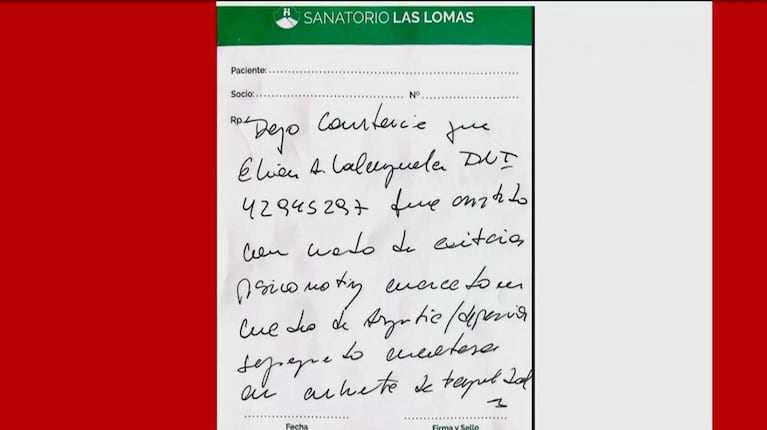 SANATORIO LAS LOMAS
Paciente:
Socio: Nº
Rp./ Dejo Constancia que
Elian A. Valenzuela DNI
42945297 fue asistido
con cuadro de excitacion
psicomotriz enmarcado en
cuadro de Angustia/depresion
mantener
en ambiente de tranquilidad
Fecha Firma y Sello